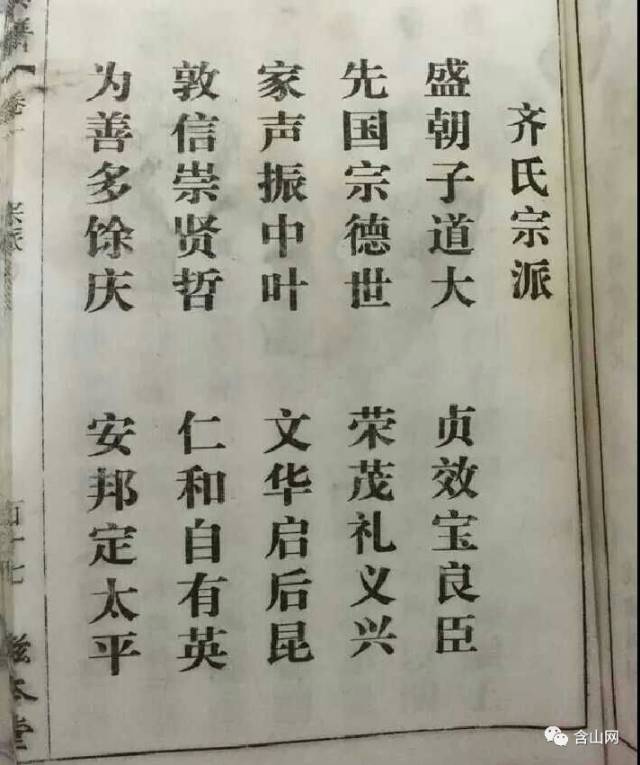 齐氏宗派
盛朝子道大
贞效宝良臣
先国宗德世
荣茂礼义兴
家声振中叶
文华启后昆
敦信崇贤哲
仁和自有英
为善多馀庆
安邦定太平
卷一
宗派
百十七
含山网